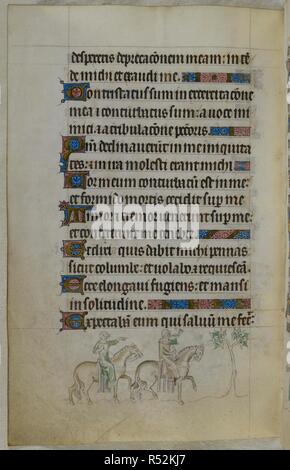 despexeris deprecacōnem meam: in tē
de michi et exaudi me.
Contristatus sum in exercitacōne
mea: conturbatus sum: a uoce ini
mici: a tribulacōne peccoris.
Qm̄ declinauerūt in me iniquita
tes: in ira molesti erant michi
Cor meum conturbatū est in me:
et formido mortis cecidit sup me
Timor et tremor uenerunt sup me:
et contexerunt me tenebre.
Et dixi quis dabit michi pennas
sicut columbe: et uolabo: requiescā.
Ecce elongaui fugiens: et mansi
in solitudine.
Expectabā eum qui saluū me fec̄:
alamy stock photo
R52KJ7